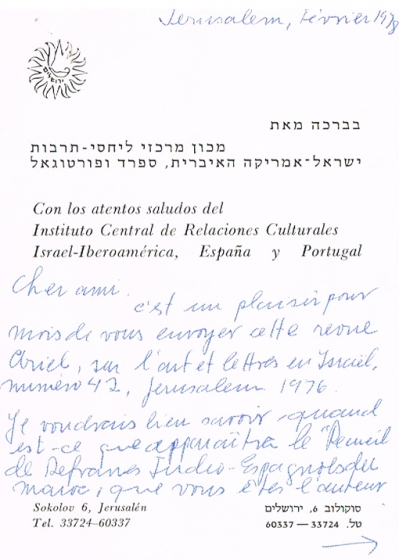 Jerusalem, Février 1978
ירושלים
בברכה מאת
מכון מרכזי ליחסי-תרבות
ישראל-אמריקה האיברית, ספרד ופורטוגאל
Con los atentos saludos del
Instituto Central de Relaciones Culturales
Israel-Iberoamérica, España y Portugal
Cher ami.
c'est un plaisir pour
mois de vous envoyer cette revue
Ariel, sur l'art et lettres en Israel,
numero 42, Jerusalem 1976.
Je voudrais bien savoir quand
est-ce que apparaîtra le "Recueil
de Refranes Judeo-Espagnols du
Maroc, que vous êtes l'auteur
Sokolov 6, Jerusalén
Tel. 33724-60337
סוקולוב 6, ירושלים
טל. 33724 — 60337